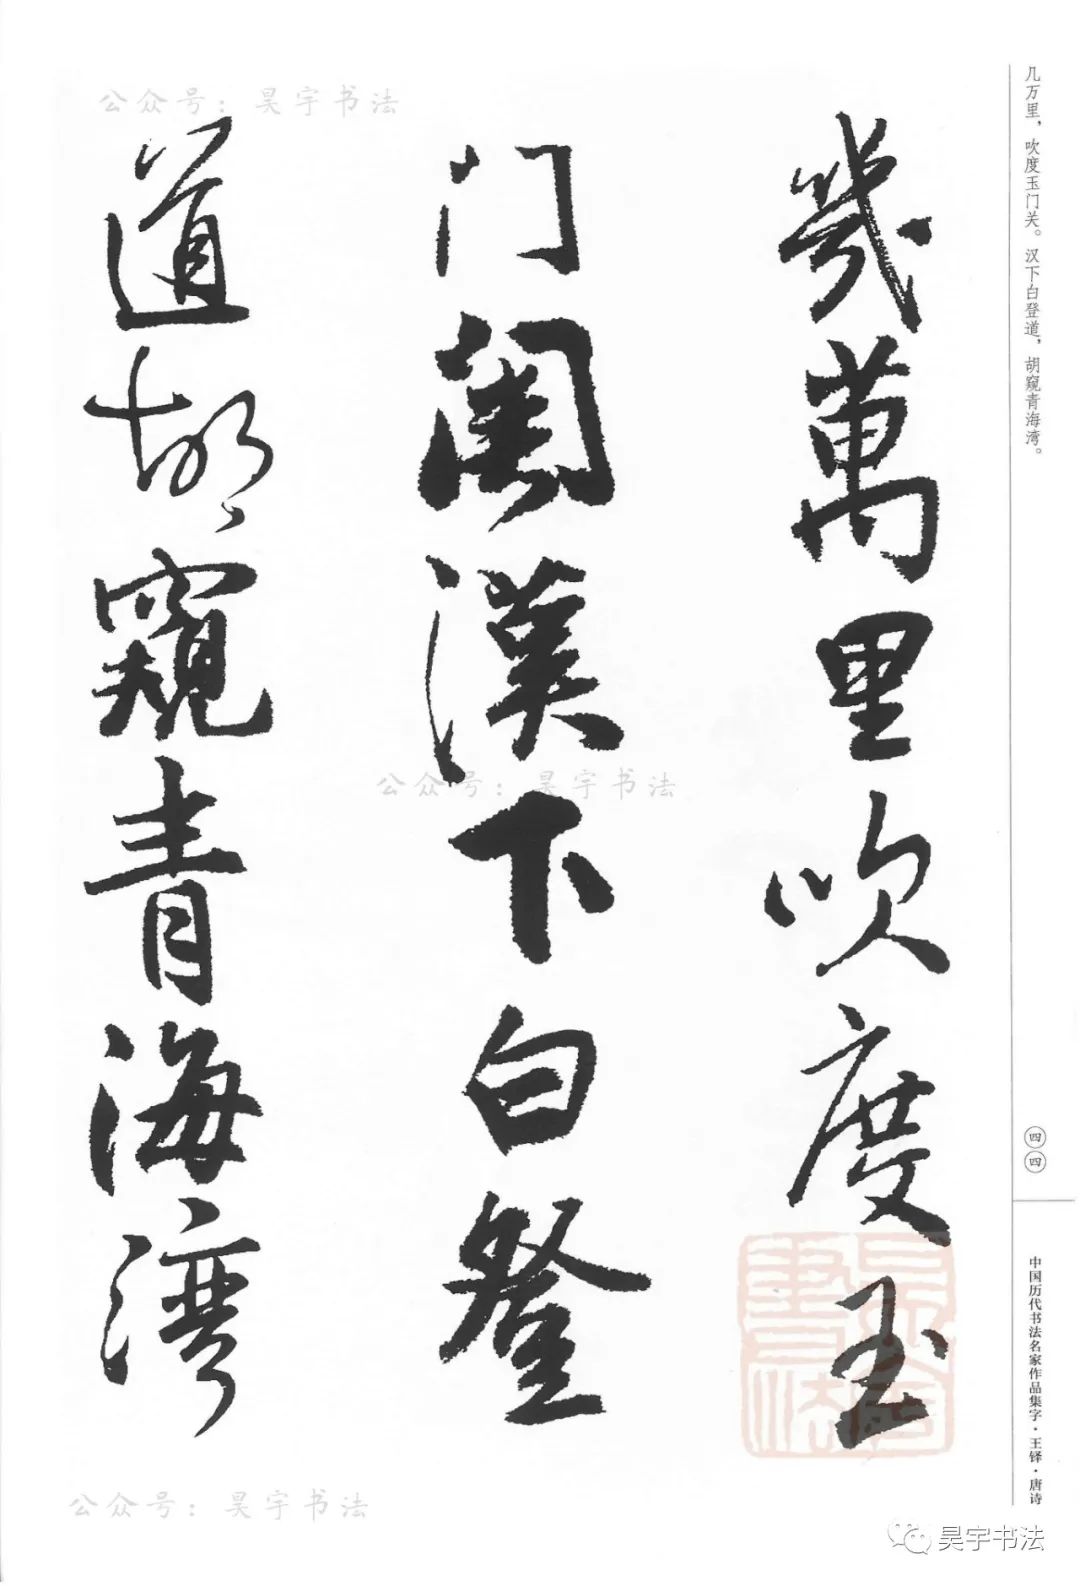 几万里，吹度玉门关。汉下白登道，胡窥青海湾。
四四
中国历代书法名家作品集字·王铎·唐诗
幾萬里吹度玉
门關漢下白登
道胡窺青海湾
公众号：昊宇书法
公众号：昊宇书法
公众号：昊宇书法
昊宇書法
昊宇书法